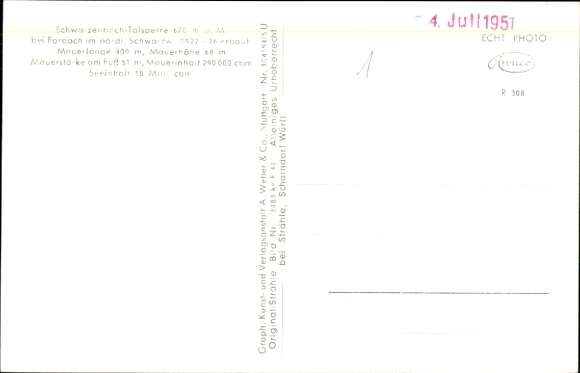 Schwarzenbach-Talsperre 670 m ü. M.
bei Forbach im nördl. Schwarzw. 1922-26 erbaut
Mauerlänge 400 m, Mauerhöhe 68 m
Mauerstärke am Fuß 51 m, Mauerinhalt 290 000 cbm
Seeinhalt 15 Mill. cbm
Graph. Kunst- und Verlagsanstalt A. Weber & Co., Stuttgart
Original-Strähle Bild Nr. Alleiniges Urheberrecht
bei Strähle, Schorndorf Württ.
- 4. Juli 1951
ECHT PHOTO
R 308
1